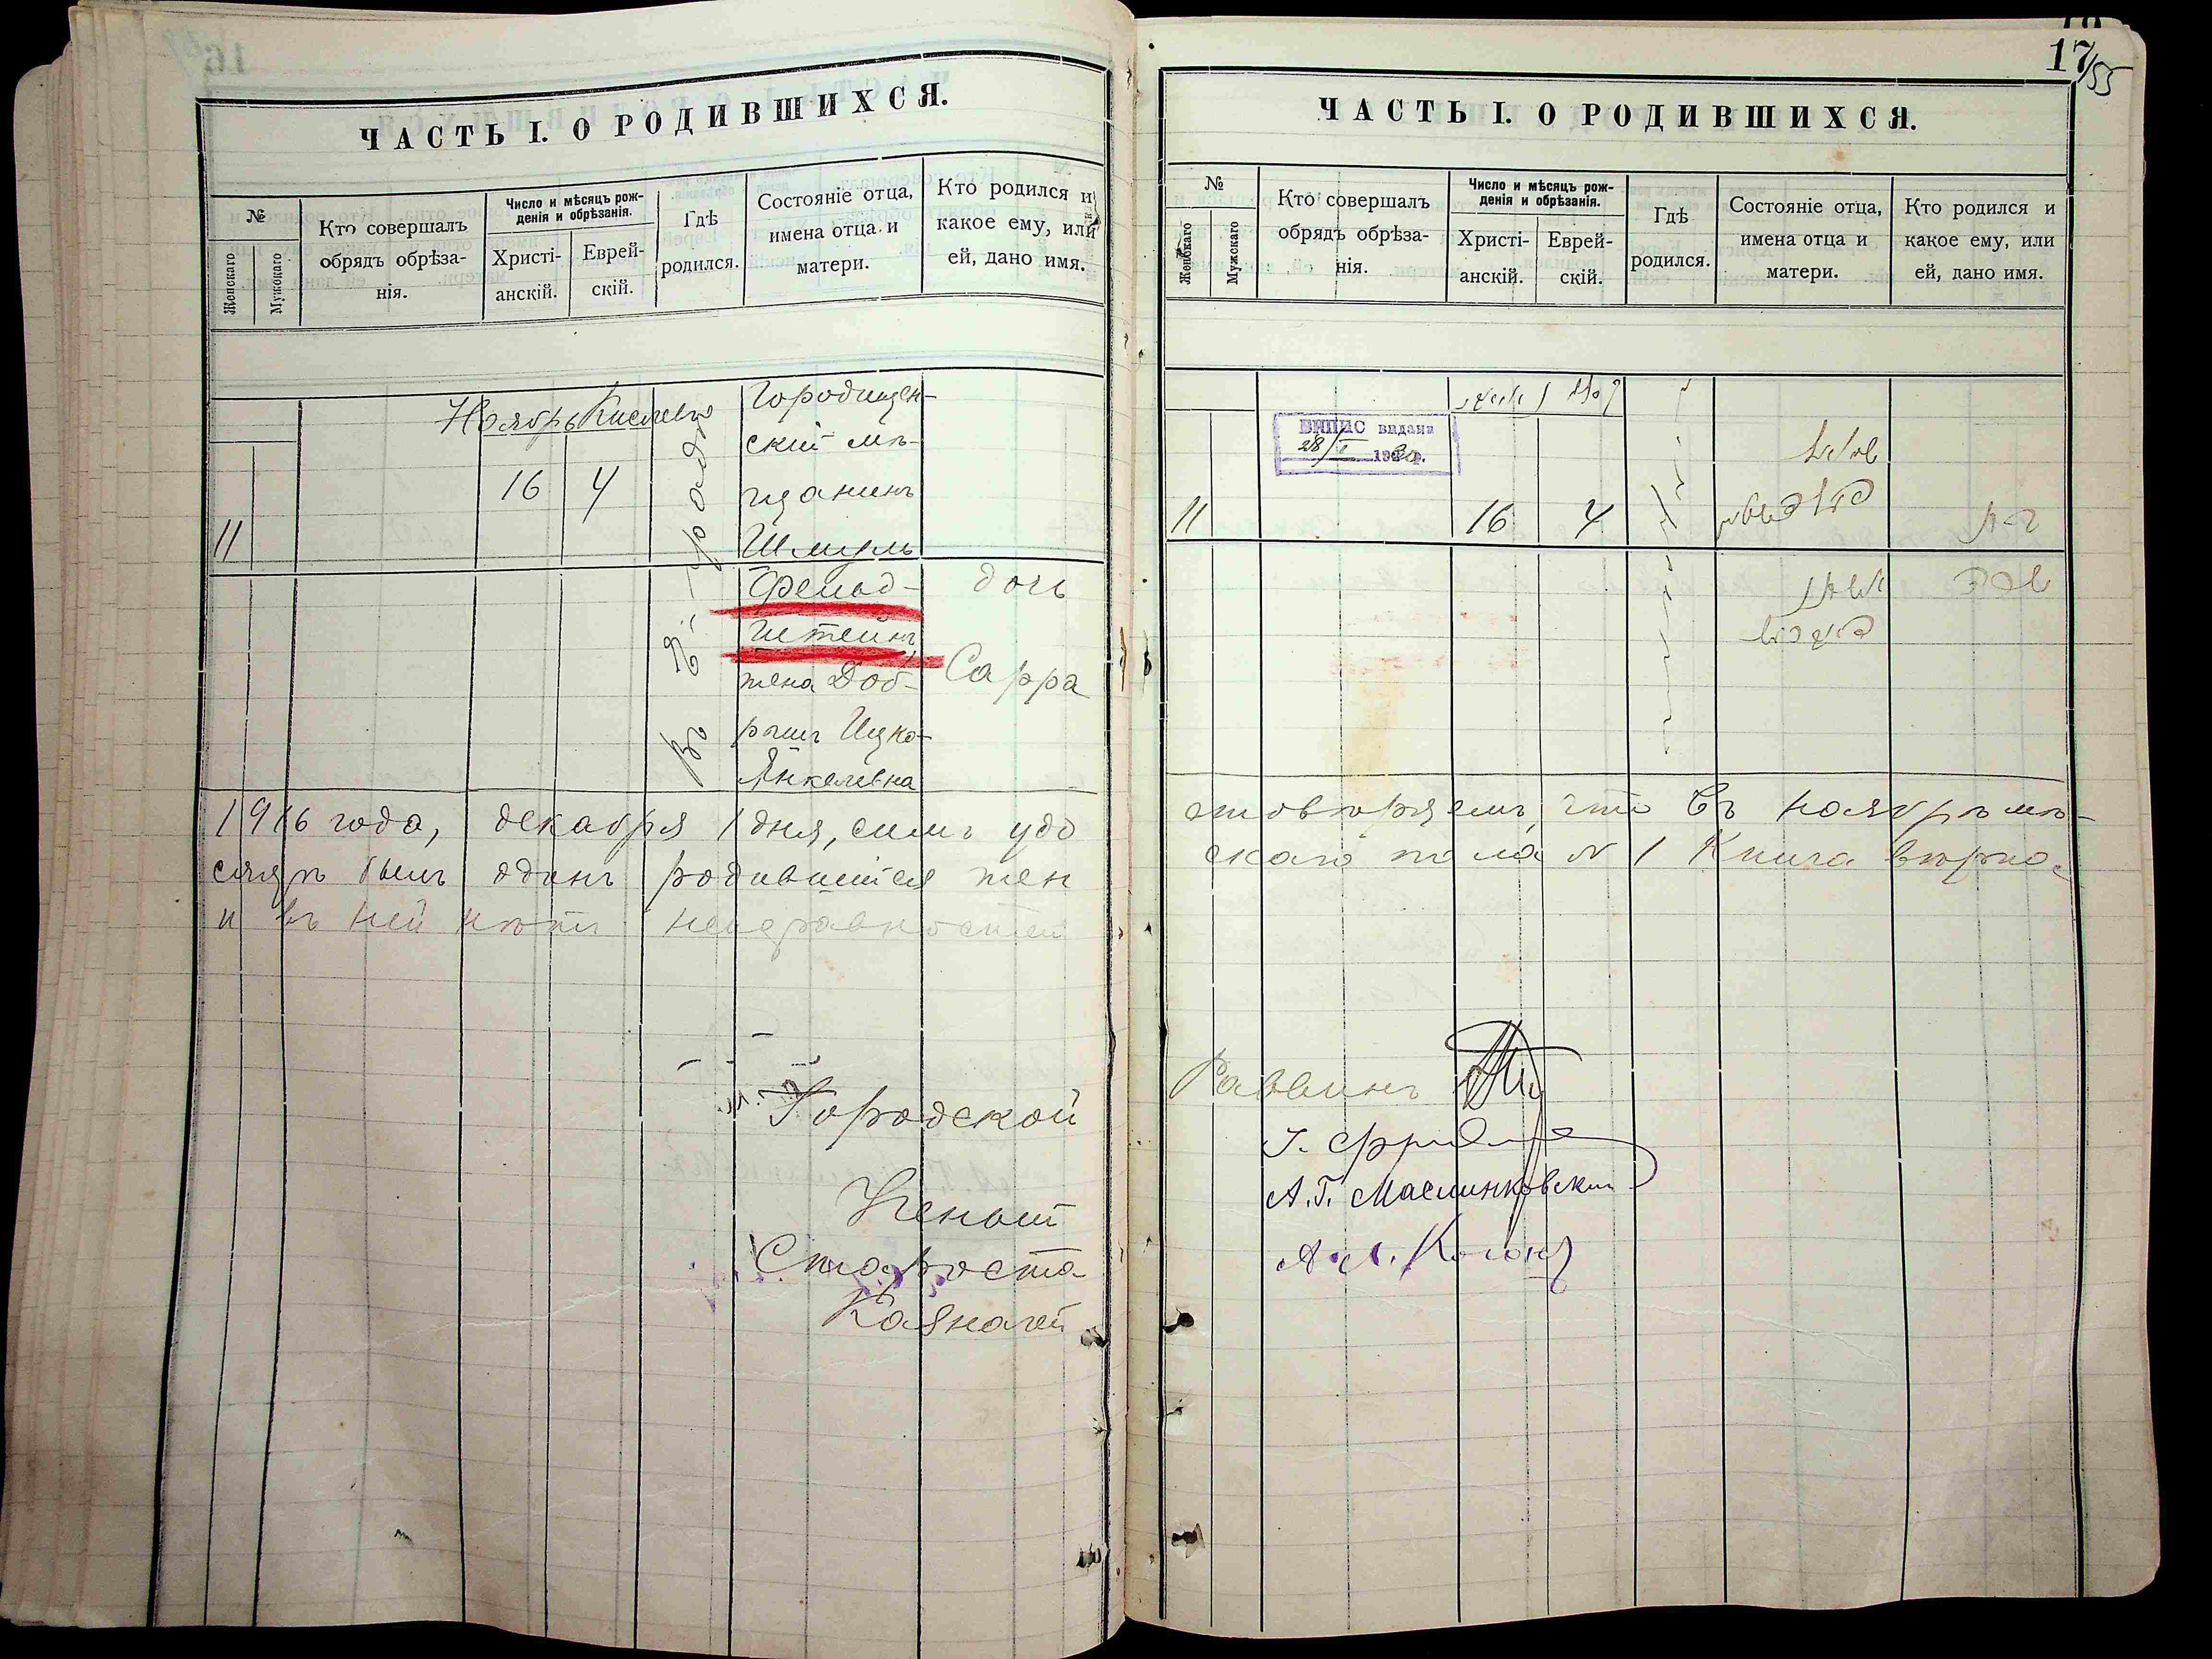 ЧАСТЬ I. О РОДИВШИХСЯ.
№
Женскаго
Мужскаго
Кто совершалъ
обрядъ обрѣза-
нія.
Число и мѣсяцъ рож-
денія и обрѣзанія.
Христі-
анскій.
Еврей-
скій.
Гдѣ
родился.
Состояніе отца,
имена отца и
матери.
Кто родился и
какое ему, или
ей, дано имя.
Ноябрь Кислевъ
11
16
4
Городищен-
скій мѣ-
щанинъ
Шмуль
Фельд-
штейнъ,
жена Доб-
рышъ Ицко-
Янкелевна
дочь
Сарра
1916 года, декабря 1 дня, симъ удо
сяцѣ былъ одинъ родившійся жен
и въ ней нѣтъ неисправностей
Городской
Ученый
Староста
Казначей
17/55
ЧАСТЬ I. О РОДИВШИХСЯ.
№
Женскаго
Мужскаго
Кто совершалъ
обрядъ обрѣза-
нія.
Число и мѣсяцъ рож-
денія и обрѣзанія.
Христі-
анскій.
Еврей-
скій.
Гдѣ
родился.
Состояніе отца,
имена отца и
матери.
Кто родился и
какое ему, или
ей, дано имя.
ВИПИС видани
28/I 1930 р.
11
16
4
стовѣряемъ, что въ ноябрѣ мѣ-
скаго пола № 1 Книга вѣрна
Раввинъ
А. Г. Маслинковский
А. Л. Коганъ